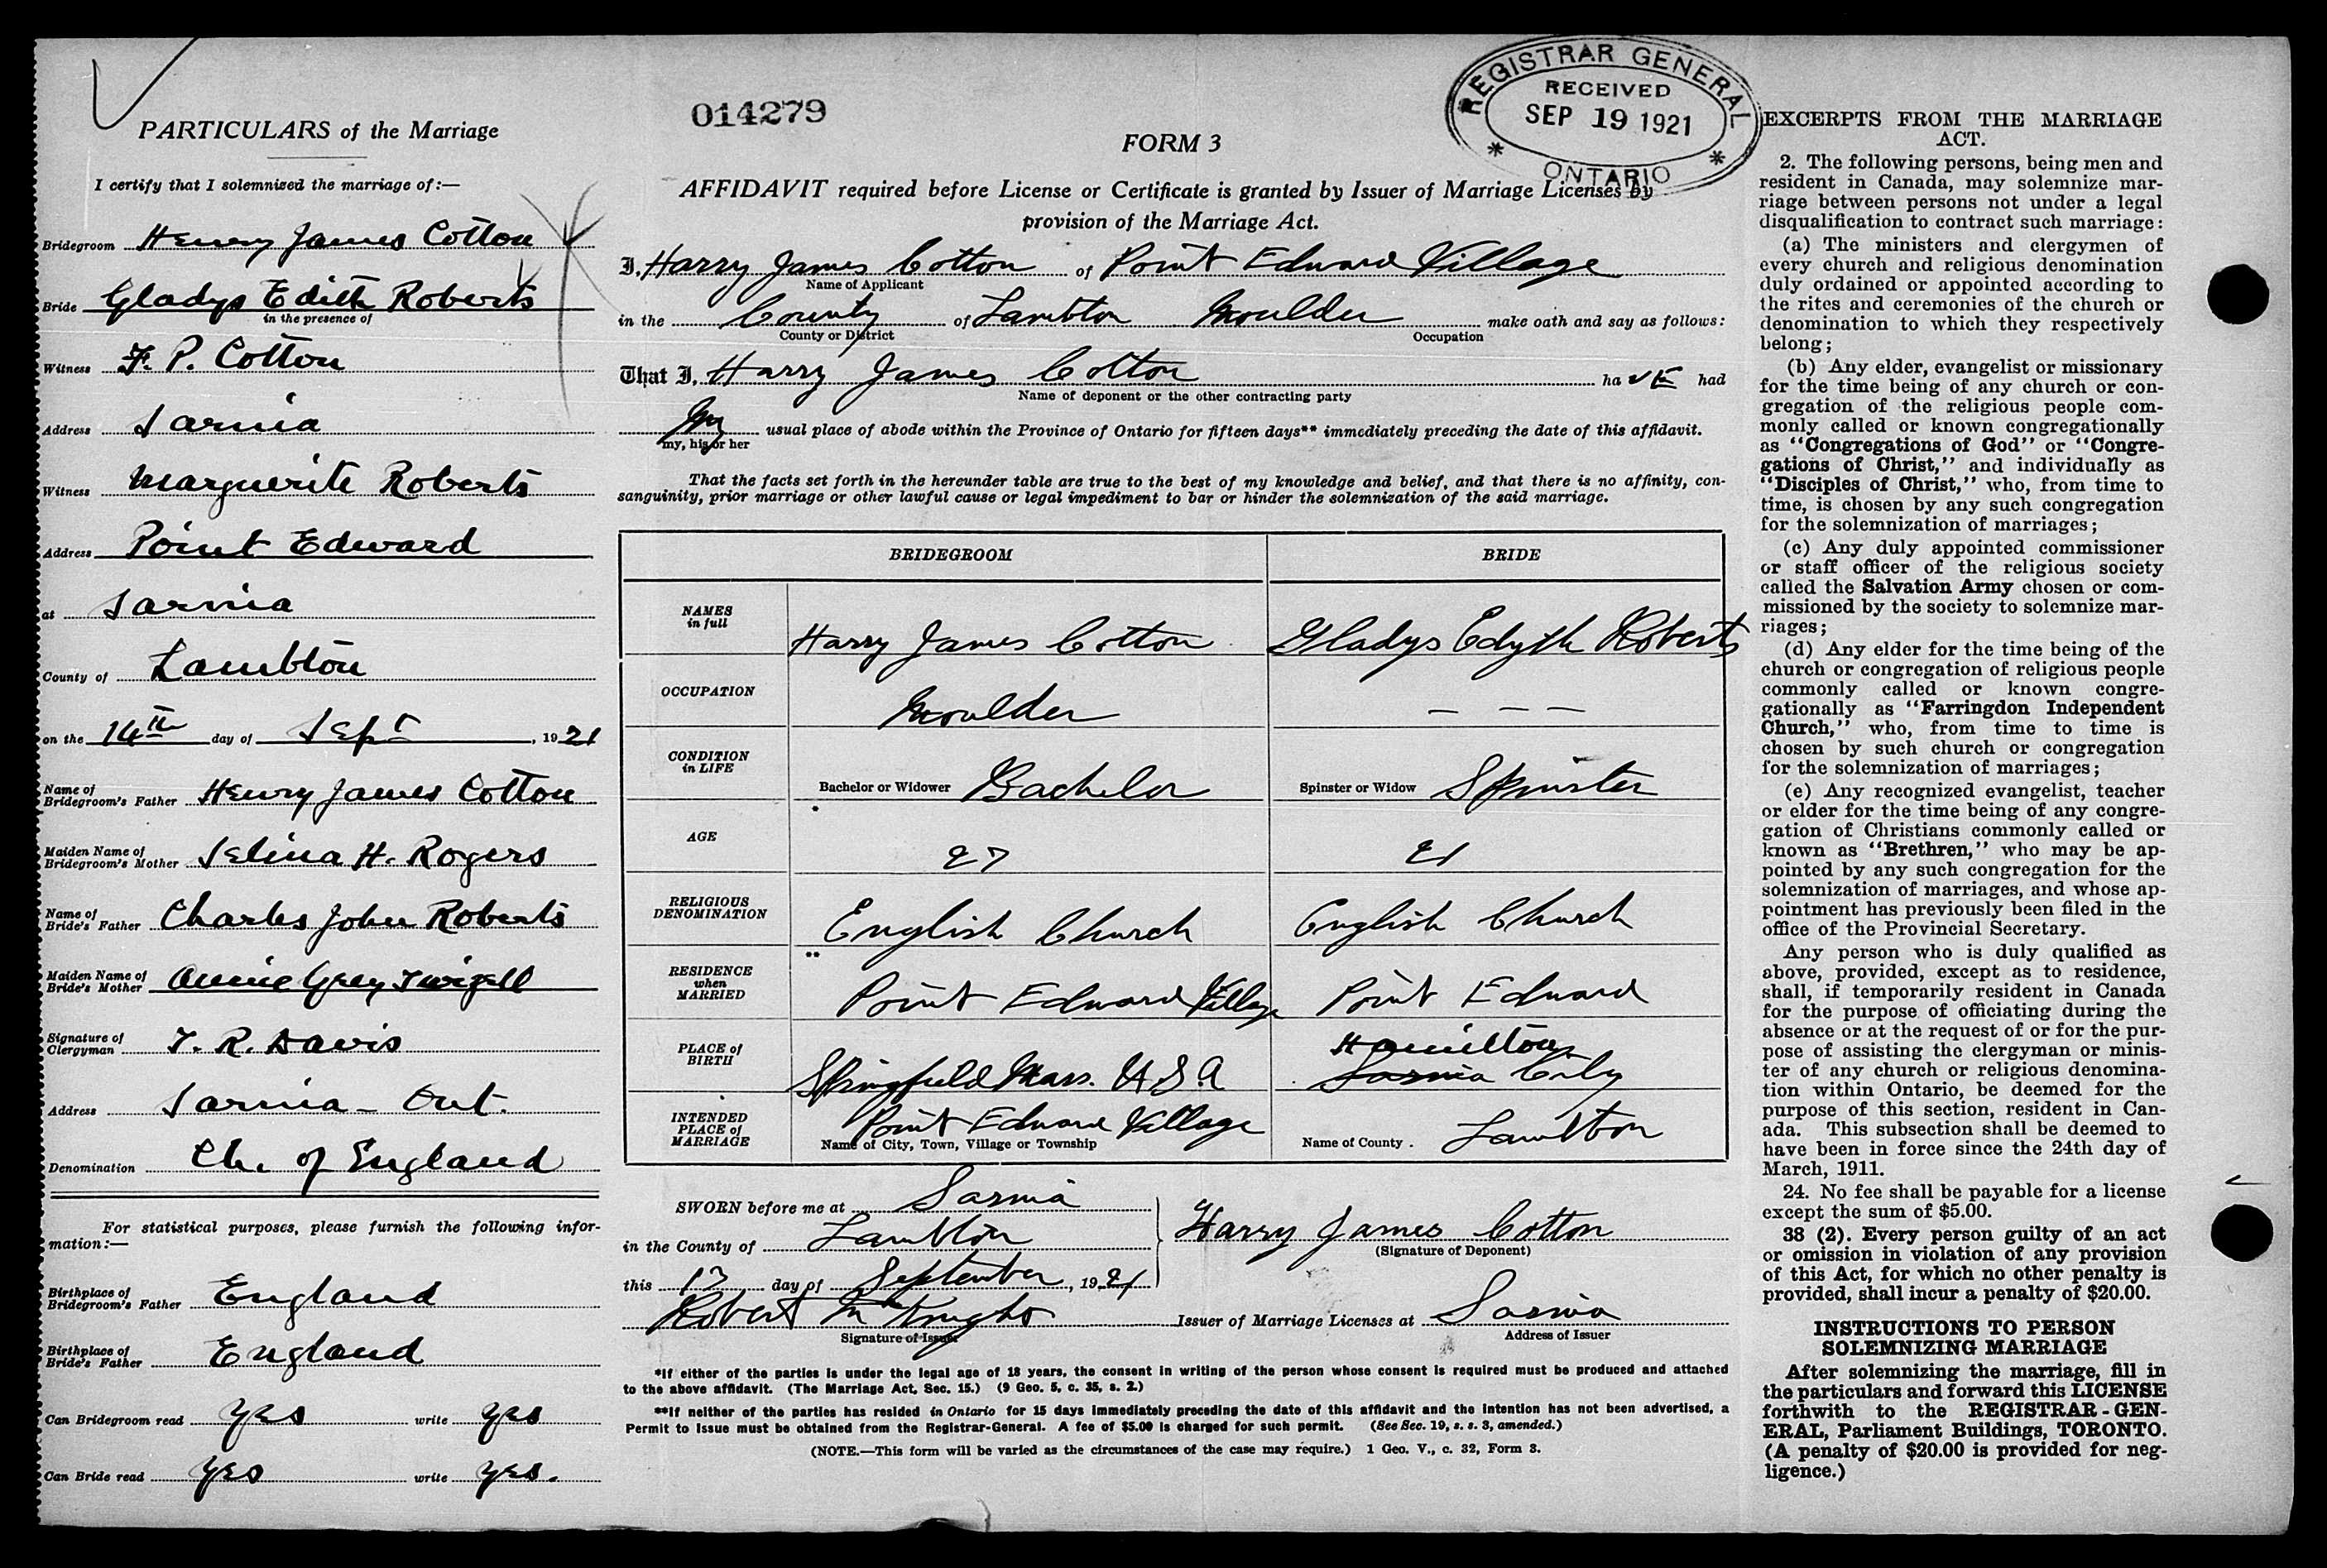 PARTICULARS of the Marriage
I certify that I solemnized the marriage of:—
Bridegroom Henry James Cotton
Bride Gladys Edith Roberts
in the presence of
Witness F. P. Cotton
Address Sarnia
Witness Marguerite Roberts
Address Point Edward
at Sarnia
County of Lambton
on the 14th day of Sept, 1921
Name of
Bridegroom's Father Henry James Cotton
Maiden Name of
Bridegroom's Mother Selina H. Rogers
Name of
Bride's Father Charles John Roberts
Maiden Name of
Bride's Mother Annie Grey
Signature of
Clergyman T. R. Davis
Address Sarnia - Ont.
Denomination Ch. of England
For statistical purposes, please furnish the following infor-
mation:—
Birthplace of
Bridegroom's Father England
Birthplace of
Bride's Father England
Can Bridegroom read Yes write Yes
Can Bride read Yes write Yes.
014279
FORM 3
REGISTRAR GENERAL
RECEIVED
SEP 19 1921
ONTARIO
AFFIDAVIT required before License or Certificate is granted by Issuer of Marriage Licenses by
provision of the Marriage Act.
I, Harry James Cotton of Point Edward Village
Name of Applicant
in the County of Lambton Moulder make oath and say as follows:
County or District Occupation
That I, Harry James Cotton have had
Name of deponent or the other contracting party
My usual place of abode within the Province of Ontario for fifteen days** immediately preceding the date of this affidavit.
my, his or her
That the facts set forth in the hereunder table are true to the best of my knowledge and belief, and that there is no affinity, con-
sanguinity, prior marriage or other lawful cause or legal impediment to bar or hinder the solemnization of the said marriage.
BRIDEGROOM BRIDE
NAMES
in full Harry James Cotton Gladys Edyth Roberts
OCCUPATION Moulder — — —
CONDITION
in LIFE Bachelor or Widower Bachelor Spinster or Widow Spinster
AGE 27 21
RELIGIOUS
DENOMINATION English Church English Church
RESIDENCE
when
MARRIED Point Edward Village Point Edward
PLACE of
BIRTH Springfield Mass. U.S.A Hamilton
Sarnia City
INTENDED
PLACE of
MARRIAGE Point Edward Village Lambton
Name of City, Town, Village or Township Name of County.
SWORN before me at Sarnia
in the County of Lambton
this 13 day of September, 1921
Harry James Cotton
(Signature of Deponent)
Robert
Signature of Issuer
Issuer of Marriage Licenses at Sarnia
Address of Issuer
*If either of the parties is under the legal age of 18 years, the consent in writing of the person whose consent is required must be produced and attached
to the above affidavit. (The Marriage Act, Sec. 15.) (9 Geo. 5, c. 35, s. 2.)
**If neither of the parties has resided in Ontario for 15 days immediately preceding the date of this affidavit and the intention has not been advertised, a
Permit to issue must be obtained from the Registrar-General. A fee of $5.00 is charged for such permit. (See Sec. 19, s. s. 3, amended.)
(NOTE.—This form will be varied as the circumstances of the case may require.) 1 Geo. V., c. 32, Form 3.
EXCERPTS FROM THE MARRIAGE
ACT.
2. The following persons, being men and
resident in Canada, may solemnize mar-
riage between persons not under a legal
disqualification to contract such marriage:
(a) The ministers and clergymen of
every church and religious denomination
duly ordained or appointed according to
the rites and ceremonies of the church or
denomination to which they respectively
belong;
(b) Any elder, evangelist or missionary
for the time being of any church or con-
gregation of the religious people com-
monly called or known congregationally
as "Congregations of God" or "Congre-
gations of Christ," and individually as
"Disciples of Christ," who, from time to
time, is chosen by any such congregation
for the solemnization of marriages;
(c) Any duly appointed commissioner
or staff officer of the religious society
called the Salvation Army chosen or com-
missioned by the society to solemnize mar-
riages;
(d) Any elder for the time being of the
church or congregation of religious people
commonly called or known congre-
gationally as "Farringdon Independent
Church," who, from time to time is
chosen by such church or congregation
for the solemnization of marriages;
(e) Any recognized evangelist, teacher
or elder for the time being of any congre-
gation of Christians commonly called or
known as "Brethren," who may be ap-
pointed by any such congregation for the
solemnization of marriages, and whose ap-
pointment has previously been filed in the
office of the Provincial Secretary.
Any person who is duly qualified as
above, provided, except as to residence,
shall, if temporarily resident in Canada
for the purpose of officiating during the
absence or at the request of or for the pur-
pose of assisting the clergyman or minis-
ter of any church or religious denomina-
tion within Ontario, be deemed for the
purpose of this section, resident in Can-
ada. This subsection shall be deemed to
have been in force since the 24th day of
March, 1911.
24. No fee shall be payable for a license
except the sum of $5.00.
38 (2). Every person guilty of an act
or omission in violation of any provision
of this Act, for which no other penalty is
provided, shall incur a penalty of $20.00.
INSTRUCTIONS TO PERSON
SOLEMNIZING MARRIAGE
After solemnizing the marriage, fill in
the particulars and forward this LICENSE
forthwith to the REGISTRAR-GEN-
ERAL, Parliament Buildings, TORONTO.
(A penalty of $20.00 is provided for neg-
ligence.)